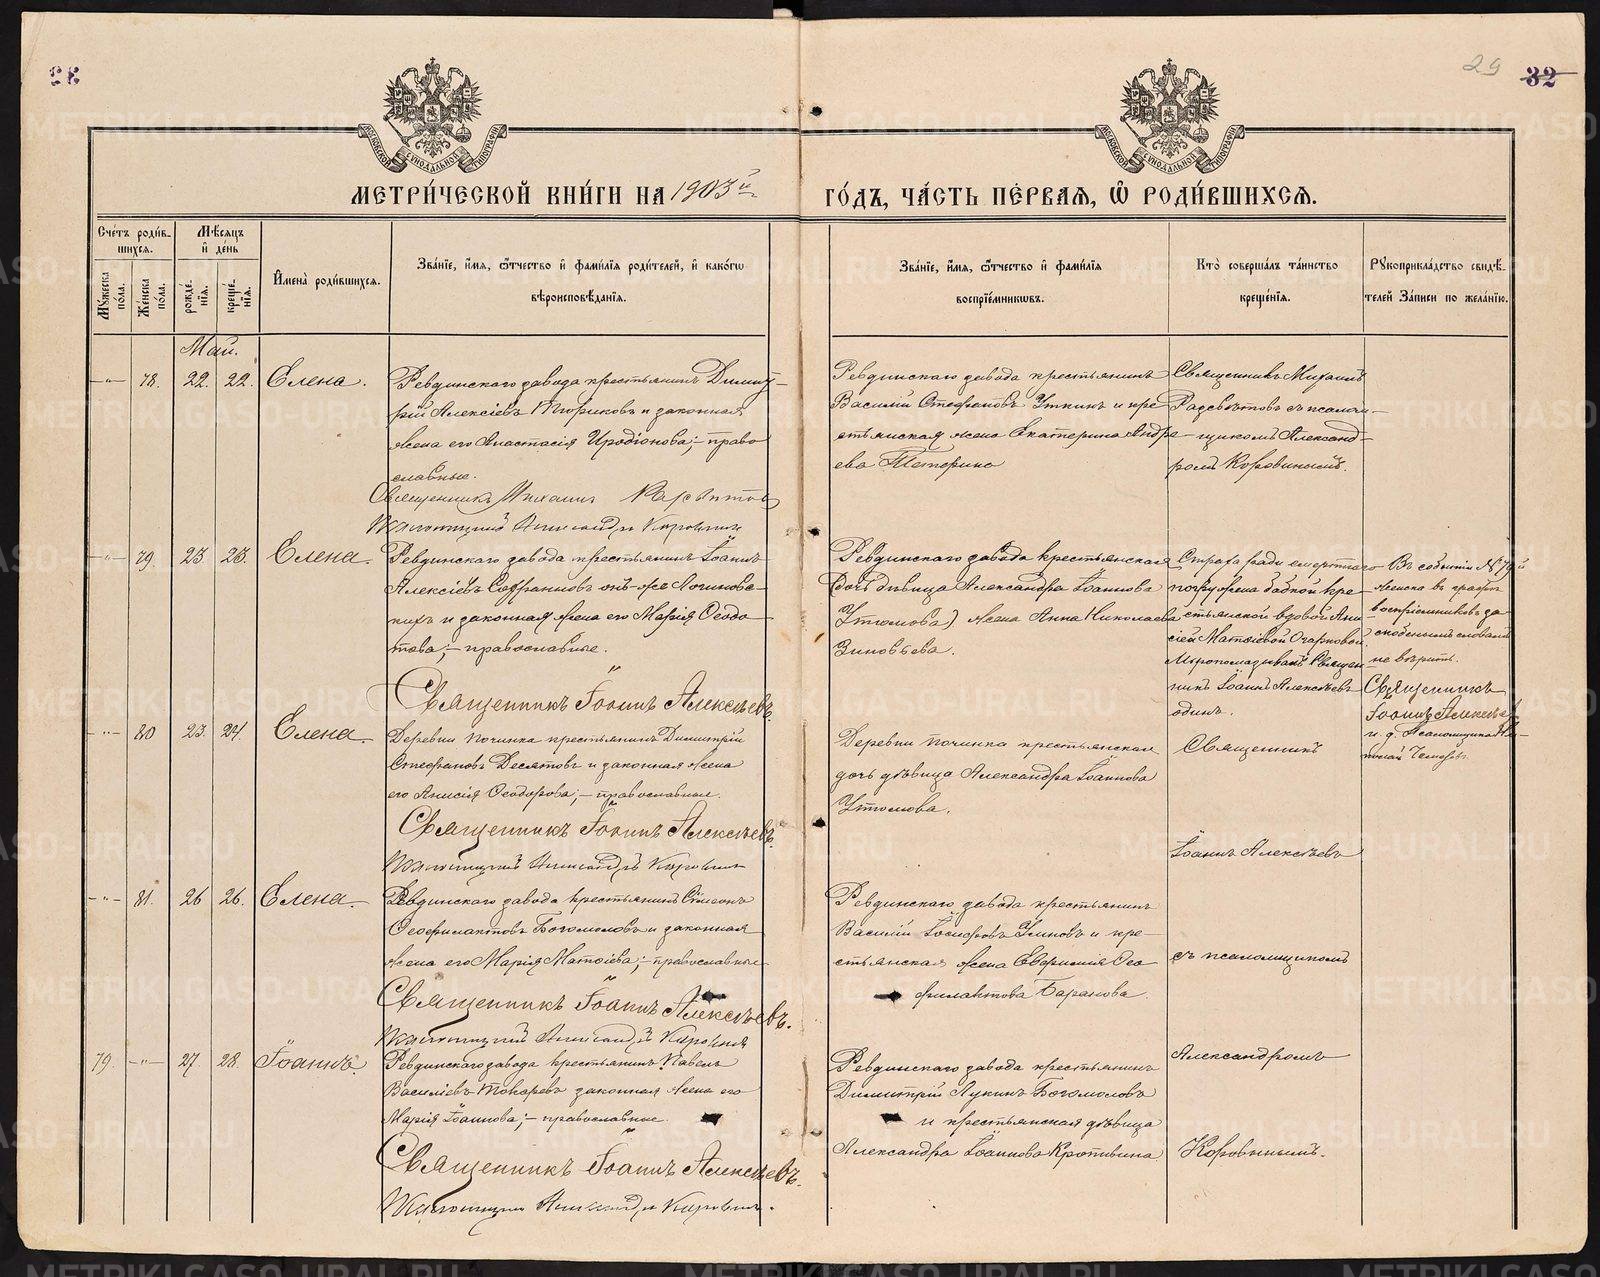 29
32
МОСКОВСКОЙ СѴНОДАЛЬНОЙ ТИПОГРАФІИ
МОСКОВСКОЙ СѴНОДАЛЬНОЙ ТИПОГРАФІИ
МЕТРИ́ЧЕСКОЙ КНИ́ГИ НА 1903й ГО́ДЪ, ЧА́СТЬ ПЕ́РВАЯ, Ѿ РОДИ́ВШИХСѦ.
Сче́тъ роди́в-
шихсѧ.
Мꙋжеска по́ла.
Же́нска по́ла.
Мѣ́сяцъ
и де́нь
рожде́-
нїѧ.
креще́-
нїѧ.
Имена̀ роди́вшихсѧ.
Зва́нїе, и́мѧ, ѻ́тчество и фами́лїѧ роди́телей, и како́гѡ
вѣроисповѣ́данїѧ.
Зва́нїе, и́мѧ, ѻ́тчество и фами́лїѧ
воспрїе́мникѡвъ.
Кто̀ соверша́лъ та́инство
креще́нїѧ.
Рꙋкоприкла́дство свидѣ́-
телей За́писи по жела́нїю.
Май.
-"- 78. 22. 22. Елена.
Ревдинскаго завода крестьянинъ Димит-
рій Алексіевъ и законная
жена его Анастасія Иродіонова; - право
славные.
Священникъ Михаилъ
Псаломщикъ Александръ Коровинъ
Ревдинскаго завода крестьянинъ
Василій Стефановъ Уткинъ и кре
стьянская жена Екатерина Андре-
ева Тетерина
Священникъ Михаилъ
Разсвѣтовъ съ псалом-
щикомъ Александ-
ромъ Коровинымъ.
-"- 79. 23 23. Елена.
Ревдинскаго завода крестьянинъ Іоаннъ
Алексіевъ онъ-же Логинов
и законная жена его Марія Ѳеодо-
това; - православные.
Священникъ Іоаннъ Алексѣевъ.
Ревдинскаго завода крестьянская
(дочь дѣвица Александра Іоаннова
Утюмова) жена Анна Николаева
Зиновьева.
Страха ради смертнаго
погружена бабкой кре-
стьянской вдовой Ани-
сіей Матѳіевой
Мѵропомазывалъ Священ-
никъ Іоаннъ Алексѣевъ
одинъ.
Въ событіи № 79й
воспріемниковъ за
скобеннымъ словамъ
не вѣрить.
Священникъ
Іоаннъ Алексѣев
и. д. Псаломщика
-"- 80 23. 24. Елена.
Деревни Починка крестьянинъ Димитрій
Стефановъ Десятовъ и законная жена
его Анисія Ѳеодорова; - православные.
Священникъ Іоаннъ Алексѣевъ.
Псаломщикъ Александръ Коровинъ
Деревни Починка крестьянская
дочь дѣвица Александра Іоаннова
Утюмова.
Священникъ
Іоаннъ Алексѣевъ
-"- 81. 26 26. Елена.
Ревдинскаго завода крестьянинъ Сѵмеонъ
Ѳеофилактовъ Богомоловъ и законная
жена его Марія Матѳіева; - православные
Священникъ Іоаннъ Алексѣевъ.
Псаломщикъ Александръ Коровинъ
Ревдинскаго завода крестьянинъ
Василій и кре-
стьянская жена Евфимія Ѳео
филактова Баранова.
съ псаломщикомъ
79. -"- 27. 28. Іоаннъ.
Ревдинскаго завода крестьянинъ Павелъ
Василіевъ Токаревъ законная жена его
Марія Іоаннова; - православные.
Священникъ Іоаннъ Алексѣевъ.
Псаломщикъ Александръ Коровинъ.
Ревдинскаго завода крестьянинъ
Димитрій Лукинъ Богомоловъ
и крестьянская дѣвица
Александра Іоаннова Кропивина
Александромъ
Коровинымъ.